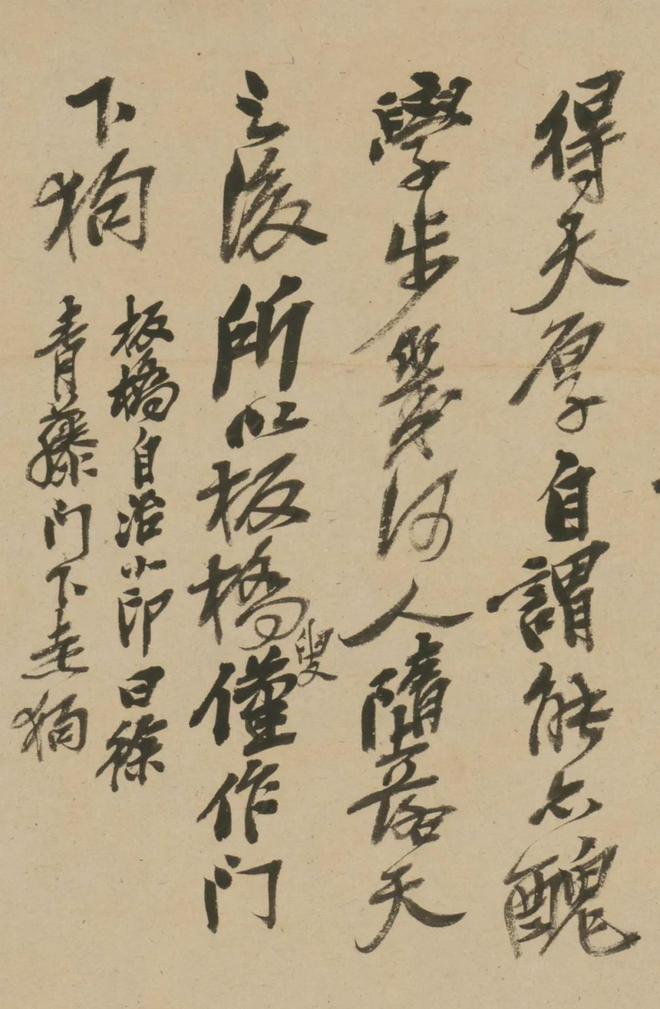 得天厚自謂能亦醜
學步幾何人隨落天
之後所以板橋叟僅作門
下狗
板橋自治小印曰徐
青藤門下走狗